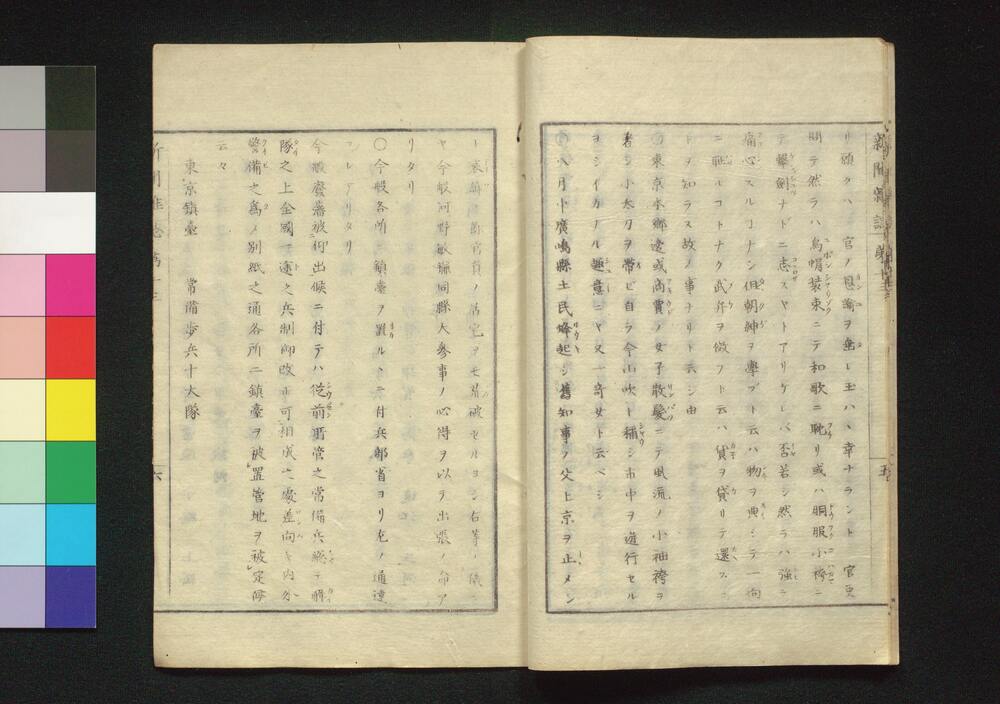 新聞雜誌 第十三
五
リ願クハ 官ノ恩諭ヲ垂レ玉ハヽ幸ナラント 官吏
問テ然ラハ烏帽裝束ニテ和歌ニ耽リ或ハ胴服小袴ニ
テ擊劍ナドニ志スヤトアリケレバ否若シ然ラハ強ニ
痛心スルコナシ但朝紳ヲ學ブト云ハ物ヲ典シテ一向
ニ賦スコトナク武弁ヲ倣フト云ハ貨ヲ貸リテ還スコ
トヲ知ラス故ノ事ナリト云シ由
○東京本郷邊或商賈ノ女子散髮ニテ風流ノ小袖袴ヲ
著シ小太刀ヲ帶ビ自ラ今山吹ト稱シ市中ヲ遊行セル
ヨシイカナル趣意ニヤ又一奇女ト云ベシ
○八月中廣嶋縣土民烽起シ舊知事ノ父上京ヲ止メン
ト
官員ノ居宅ヲモ破セルヨシ右等ノ儀ニ
ヤ今般河野敏鎌同縣大參事ノ心得ヲ以テ出張ノ命ア
リタリ
○今般各所ニ鎮臺ヲ置ルヽニ付兵部省ヨリ左ノ通達
セラレタリ
今般廢藩被仰出候ニ付テハ從前所管之常備兵總テ解
隊之上全國一途之兵制御改正可相成之處差向キ内外
警備之爲メ別紙之通各所ニ鎮臺ヲ被置管地ヲ被定候
云々
東京鎮臺 常備歩兵十大隊
新聞雜誌 第十三
六